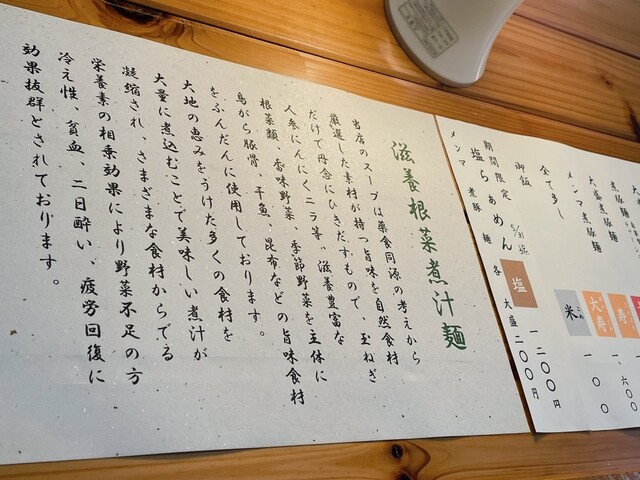 滋養根菜煮汁麺
当店のスープは薬食同源の考えから
厳選した素材が持つ旨味を自然食材
だけで丹念にひきだすもので、玉ねぎ
人参にんにくニラ等、滋養豊富な
根菜類、香味野菜、季節野菜を主体に
鳥がら豚骨、干魚、昆布などの旨味食材
をふんだんに使用しております。
大地の恵みをうけた多くの食材を
大量に煮込むことで美味しい煮汁が
凝縮され、さまざまな食材からでる
栄養素の相乗効果により野菜不足の方
冷え性、貧血、二日酔い、疲労回復に
効果抜群とされております。
大盛煮豚麺 大寿
メンマ煮豚麺
全て多し 米
御飯
期間限定
塩らぁめん 塩 一二〇〇円
メンマ 煮豚 麺 各 大盛 二〇〇円